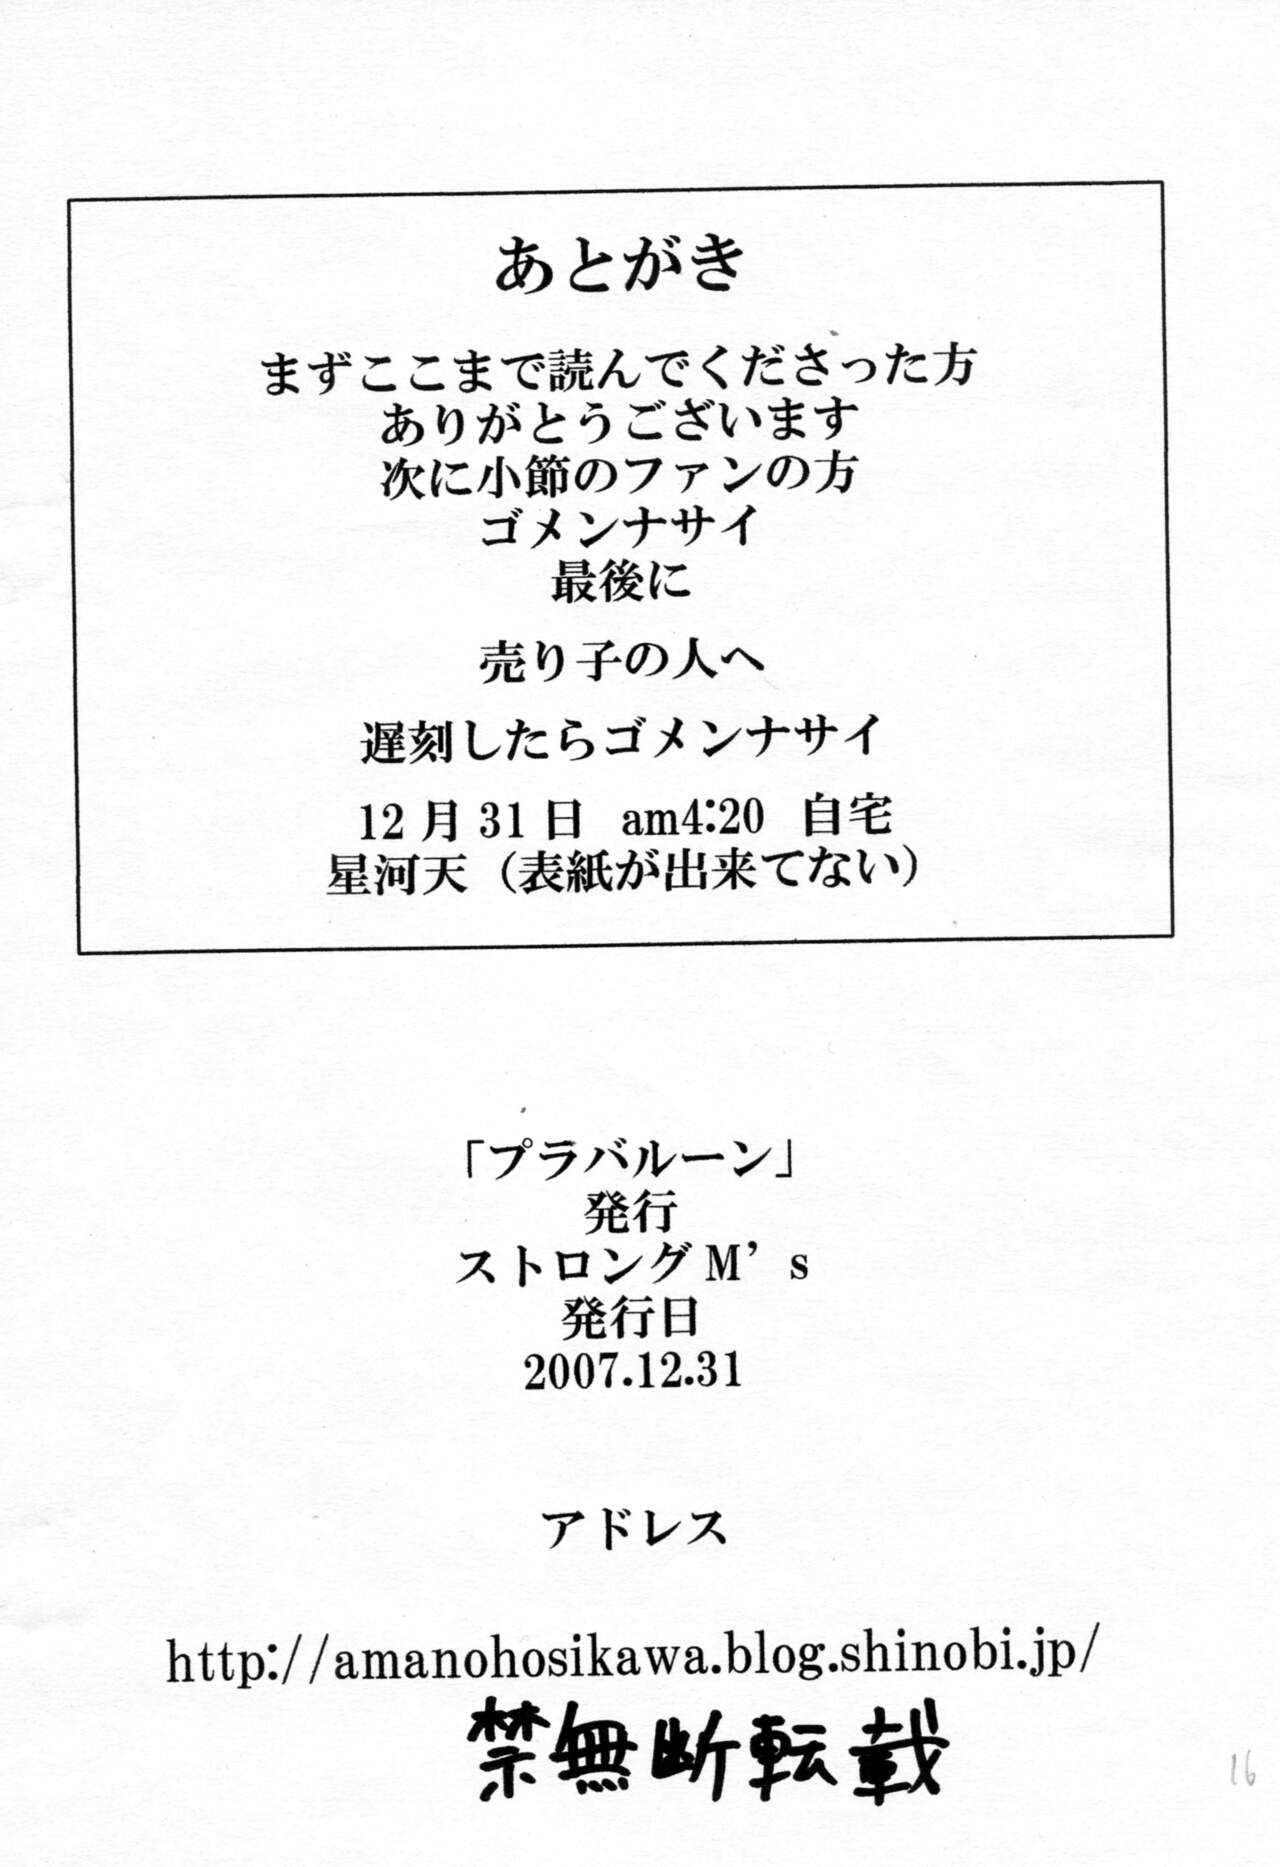 あとがき
まずここまで読んでくださった方
ありがとうございます
次に小節のファンの方
ゴメンナサイ
最後に
売り子の人へ
遅刻したらゴメンナサイ
12月31日 am4:20 自宅
星河天（表紙が出来てない）
「プラバルーン」
発行
ストロングM’s
発行日
2007.12.31
アドレス
http://amanohosikawa.blog.shinobi.jp/
禁無断転載
16